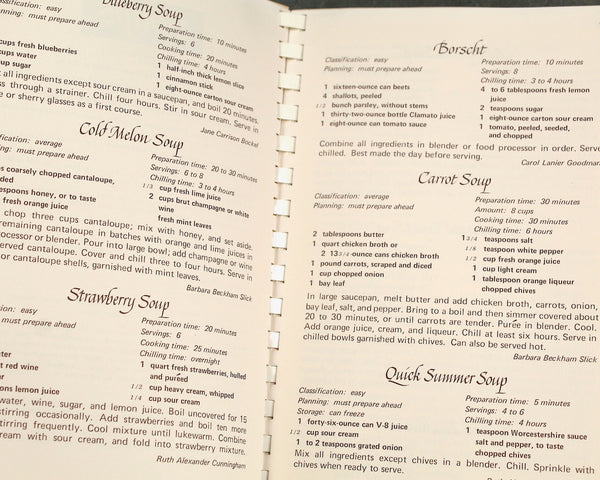 Blueberry Soup
Classification: easy
Planning: must prepare ahead
Preparation time: 10 minutes
Servings: 6
Cooking time: 20 minutes
Chilling time: 4 hours
cups fresh blueberries
cups water
cup sugar
1 half-inch thick lemon slice
1 cinnamon stick
1 eight-ounce carton sour cream
all ingredients except sour cream in a saucepan, and boil 20 minutes.
through a strainer. Chill four hours. Stir in sour cream. Serve in
or sherry glasses as a first course.
Jane Carrison Bockel
Cold Melon Soup
Classification: average
must prepare ahead
Preparation time: 20 to 30 minutes
Servings: 6 to 8
Chilling time: 3 to 4 hours
coarsely chopped cantaloupe,
honey, or to taste
fresh orange juice
1/3 cup fresh lime juice
2 cups brut champagne or white
wine
fresh mint leaves
chop three cups cantaloupe; mix with honey, and set aside.
remaining cantaloupe in batches with orange and lime juices in
processor or blender. Pour into large bowl; add champagne or wine
reserved cantaloupe. Cover and chill three to four hours. Serve in
or cantaloupe shells, garnished with mint leaves.
Barbara Beckham Slick
Strawberry Soup
easy
must prepare ahead
Preparation time: 20 minutes
Servings: 6
Cooking time: 25 minutes
Chilling time: overnight
red wine
lemon juice
1 quart fresh strawberries, hulled
and puréed
1/2 cup heavy cream, whipped
1/4 cup sour cream
water, wine, sugar, and lemon juice. Boil uncovered for 15
stirring occasionally. Add strawberries and boil ten more
stirring frequently. Cool mixture until lukewarm. Combine
cream with sour cream, and fold into strawberry mixture.
Ruth Alexander Cunningham
Borscht
Classification: easy
Planning: must prepare ahead
Preparation time: 10 minutes
Servings: 8
Chilling time: 3 to 4 hours
1 sixteen-ounce can beets
4 shallots, peeled
1/2 bunch parsley, without stems
1 thirty-two-ounce bottle Clamato juice
1 eight-ounce can tomato sauce
4 to 6 tablespoons fresh lemon
juice
2 teaspoons sugar
1 eight-ounce carton sour cream
1 tomato, peeled, seeded,
and chopped
Combine all ingredients in blender or food processor in order. Serve
chilled. Best made the day before serving.
Carol Lanier Goodman
Carrot Soup
Classification: average
Planning: must prepare ahead
Preparation time: 30 minutes
Amount: 8 cups
Cooking time: 30 minutes
Chilling time: 6 hours
2 tablespoons butter
1 quart chicken broth or
2 13 3/4-ounce cans chicken broth
1 pound carrots, scraped and diced
1 cup chopped onion
1 bay leaf
1 3/4 teaspoons salt
1/8 teaspoon white pepper
1/2 cup fresh orange juice
1 cup light cream
1 tablespoon orange liqueur
chopped chives
In large saucepan, melt butter and add chicken broth, carrots, onion,
bay leaf, salt, and pepper. Bring to a boil and then simmer covered about
20 to 30 minutes, or until carrots are tender. Purée in blender. Cool.
Add orange juice, cream, and liqueur. Chill at least six hours. Serve in
chilled bowls garnished with chives. Can also be served hot.
Barbara Beckham Slick
Quick Summer Soup
Classification: easy
Planning: must prepare ahead
Storage: can freeze
Preparation time: 5 minutes
Servings: 4 to 6
Chilling time: 4 hours
1 forty-six-ounce can V-8 juice
1/2 cup sour cream
1 to 2 teaspoons grated onion
1 teaspoon Worcestershire sauce
salt and pepper, to taste
chopped chives
Mix all ingredients except chives in a blender. Chill. Sprinkle with
chives when ready to serve.